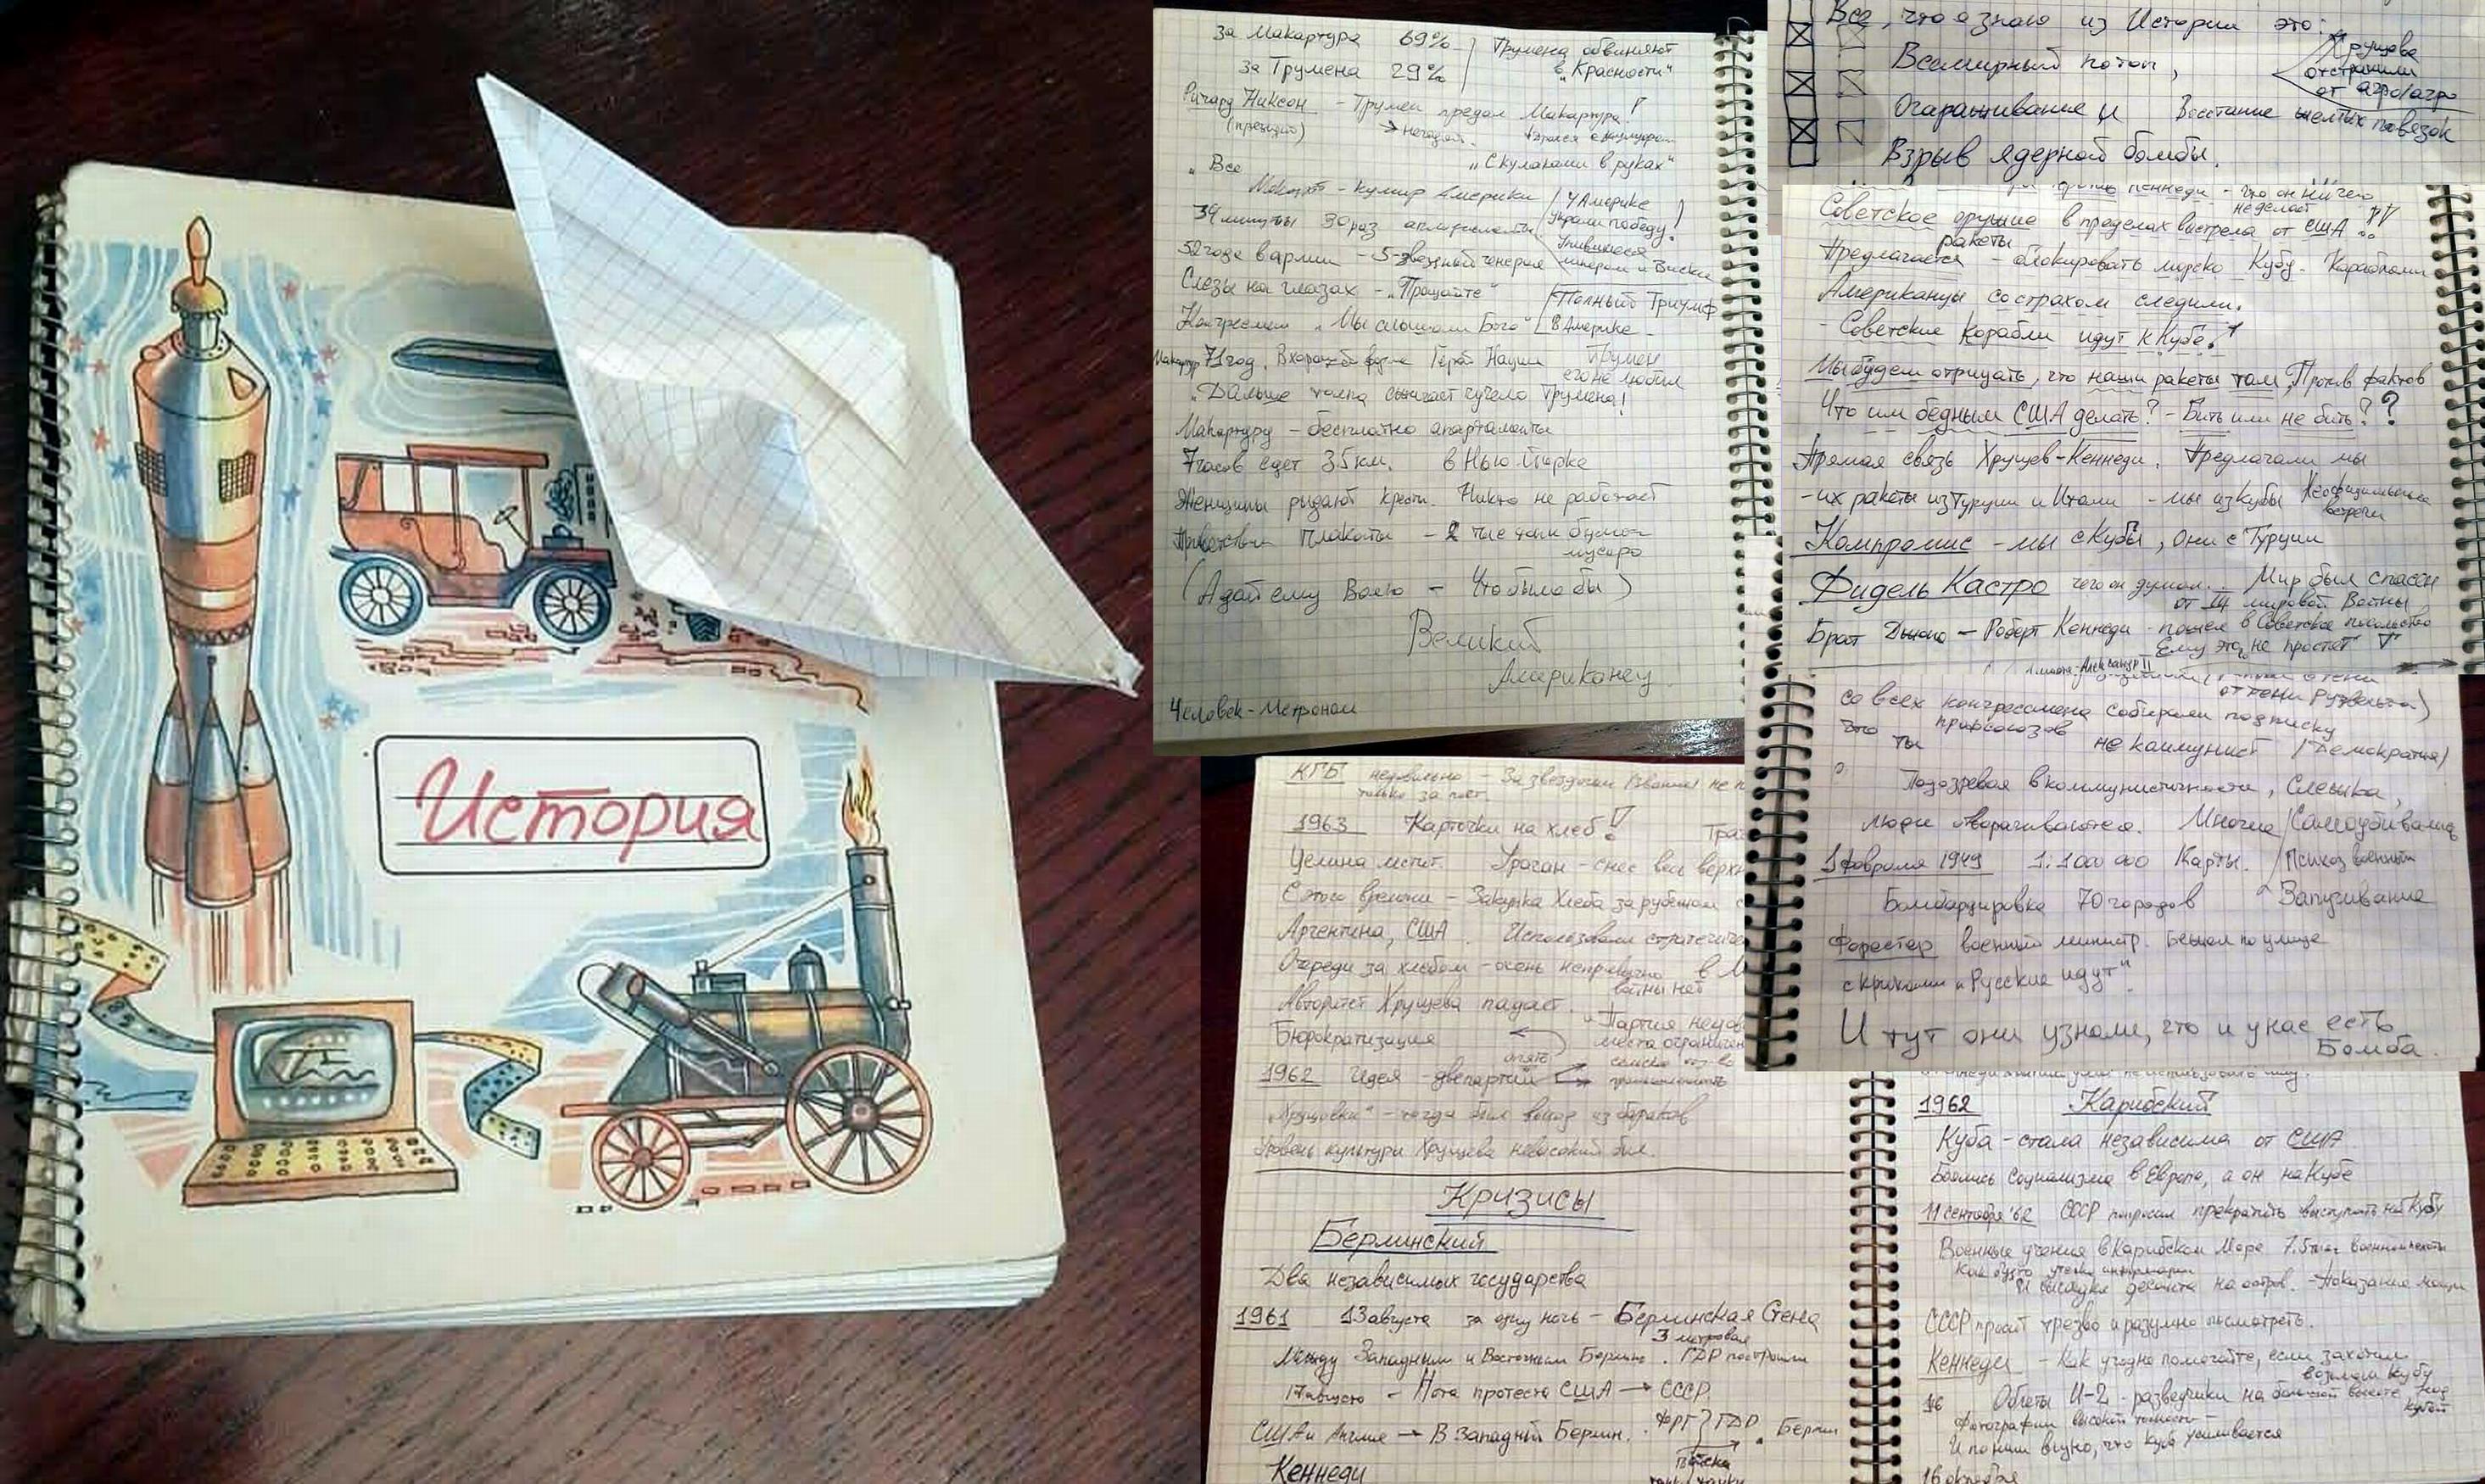 История
За Макартура 69%
за Трумена 29%
Трумена обвиняют
в „Красности“
Ричард Никсон - Трумен предал Макартура!
(президент)
„Скулаками в руках“
„Все
- кумир Америки
У Америке
украли победу!
34 минуты 30 раз аплодисменты
52 года в армии - 5-звездный генерал
Слезы на глазах - „Прощайте“
Полный Триумф
Конгрессмен „Мы слышали Бога“
в Америке
Макартур 71 год. В хорошей форме Герой Нации
Трумен
его не любил
„Дальше толпа сжигает чучело Трумена!
Макартуру - бесплатно апартаменты
7 часов едет 35 км. в Нью-Йорке
Женщины рыдают крестя. Никто не работает
Плакаты - 2 тыс тонн бумаг
мусора
(А дай ему Волю - Что было бы)
Великий
Американец
Человек-Метроном
Все, что я знаю из Истории это:
Хрущева
отстранили
от агро/агро
Всемирный потоп,
Огораживание и
Восстание желтых повязок
Взрыв ядерной бомбы.
Кеннеди - что он ничего
не делает
Советское оружие в пределах выстрела от США !!
ракеты
Предлагается - блокировать морско Кубу. Кораблями
Американцы со страхом следили.
- Советские корабли идут к Кубе!
Мы будем отрицать, что наши ракеты там, Против фактов
Что им бедным США делать? - Бить или не бить??
Прямая связь Хрущев-Кеннеди. Предлагали мы
- их ракеты из Турции и Итали - мы из Кубы
Неофициальные
встречи
Компромис - мы с Кубы, они с Турции
Фидель Кастро чего он думал... Мир был спасен
от III мировой Войны
Брат Джона - Роберт Кеннеди - пошел в Советское посольство
Ему это не простят
Александр II
от тени Рузвельта)
со всех конгрессмена собирали подписку
профсоюзов
что ты не коммунист (Демократия)
Подозревая в коммунистичности, Слежка,
люди отворачиваются. Многие
Самоубивались
1 февраля 1949 1:1 000 000 Карты.
Психоз военный
Бомбардировка 70 городов
Запугивание
Форестер военный министр. Бежал по улице
с криками „Русские идут“
И тут они узнали, что и у нас есть
Бомба.
КГБ недовольно - За звездочки (звания) не п
только за пост.
1963 Карточки на хлеб!
Целина мстит. Ураган - снес весь верх
С этого времени - Закупка Хлеба за рубежом
Аргентина, США. Использовали стратегиче
Очереди за хлебом - очень непривычно
войны нет
Авторитет Хрущева падает.
„Партия недов
Бюрократизация
места ограничен
опять
1962 идея - двепартии
„Хрущовки“ - тогда был выход из бараков
Уровень культуры Хрущева невысокий был.
Кризисы
Берлинский
Два независимых государства
1961 13 августа за одну ночь - Берлинская Стена
3 метровая
Между Западным и Восточным Берлином. ГДР построили
17 августа - Нота протеста США → СССР
США и Англия → В Западный Берлин. ФРГ ГДР. Берлин
Кеннеди
1962 Карибский
Куба - стала независима от США
Боялись Социализма в Европе, а он на Кубе
11 сентября '62 СССР попросил прекратить выступать на Кубу
Военные учения в Карибском Море 7.5 тыс
Как будто утечка информации
И высадка десанта на остров. - Показание мощи
СССР просит трезво и разумно посмотреть.
Кеннеди - Как угодно помогайте, если захотим
возьмем Кубу
Облеты U-2 - разведчики на большой высоте, над
Кубой
Фотографии высокой точности -
И по ним видно, что Куба усиливается
16 октября